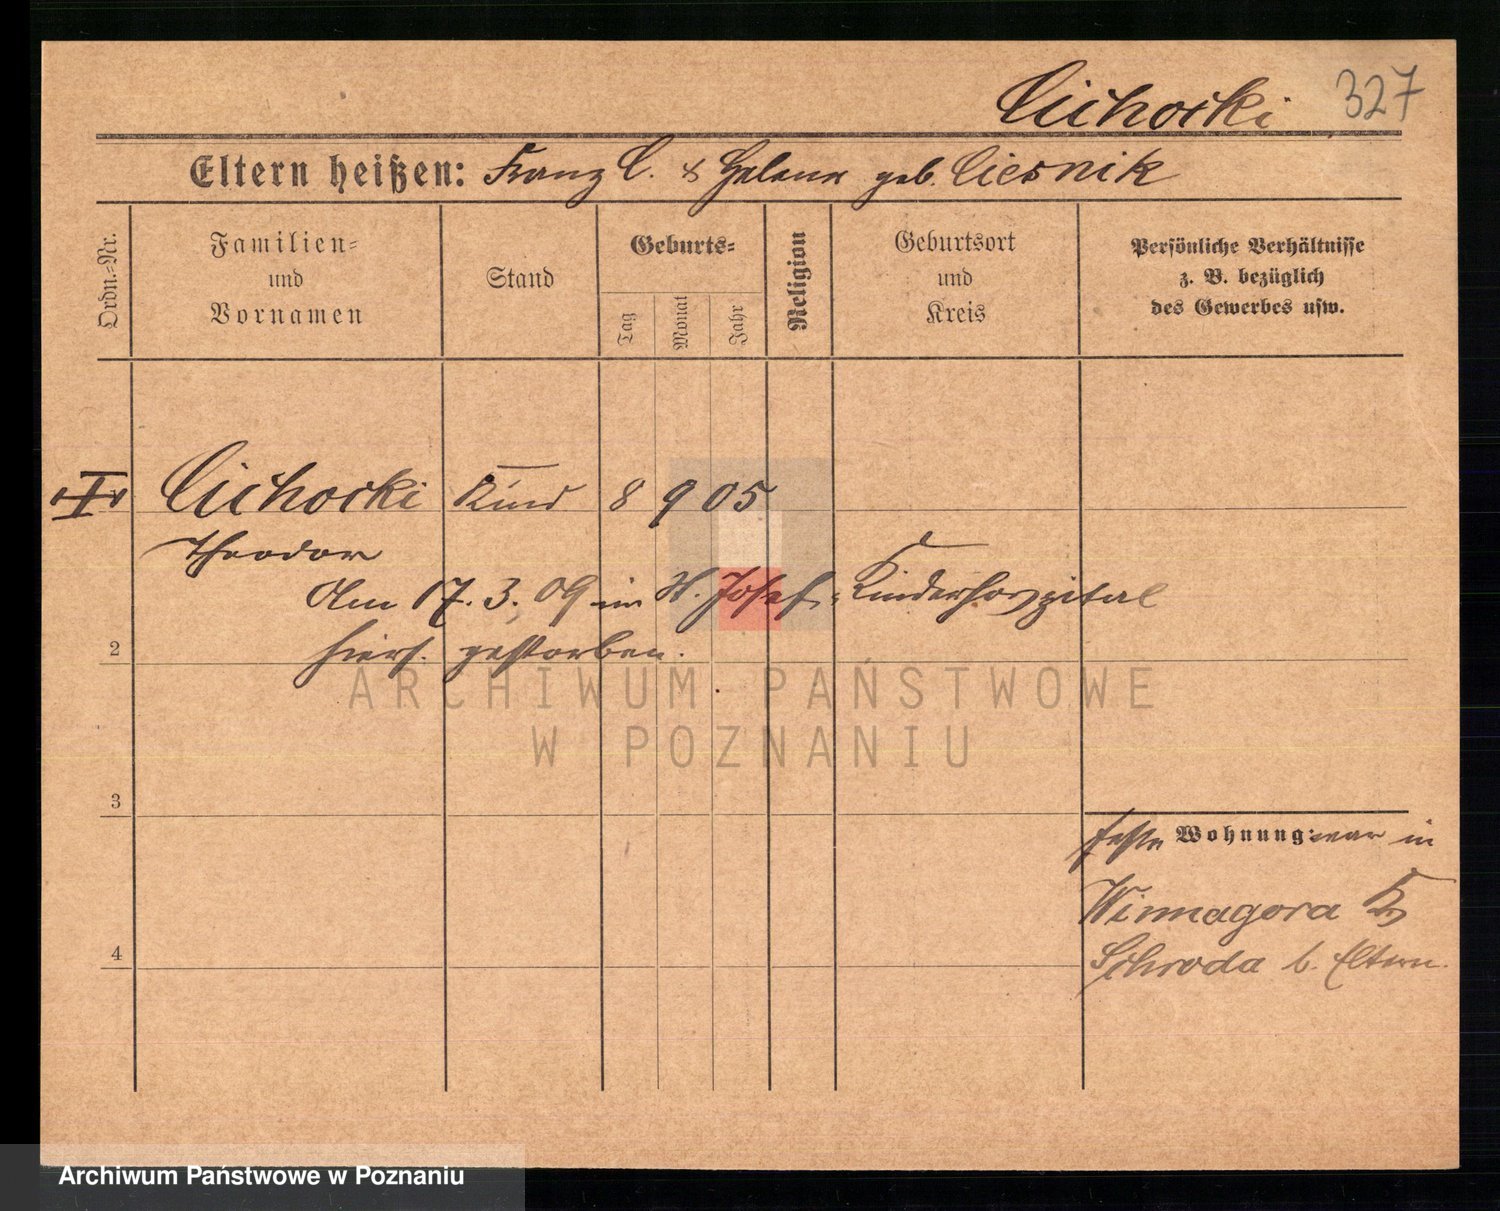 Cichocki 327
Eltern heißen: Franz C. & Helene geb. Ciesnik
Ordn.-Nr.
Familien-
und
Vornamen
Stand
Geburts-
Tag
Monat
Jahr
Religion
Geburtsort
und
Kreis
Persönliche Verhältnisse
z. B. bezüglich
des Gewerbes usw.
Cichocki Kind 8 9 05
Theodor
Am 17. 3. 09 im St. Josef-Kinderhospital
2 hiers. gestorben.
ARCHIWUM PAŃSTWOWE
W POZNANIU
3
feste Wohnung: war in
Winnagora Kr
4 Schroda b. Eltern.
Archiwum Państwowe w Poznaniu